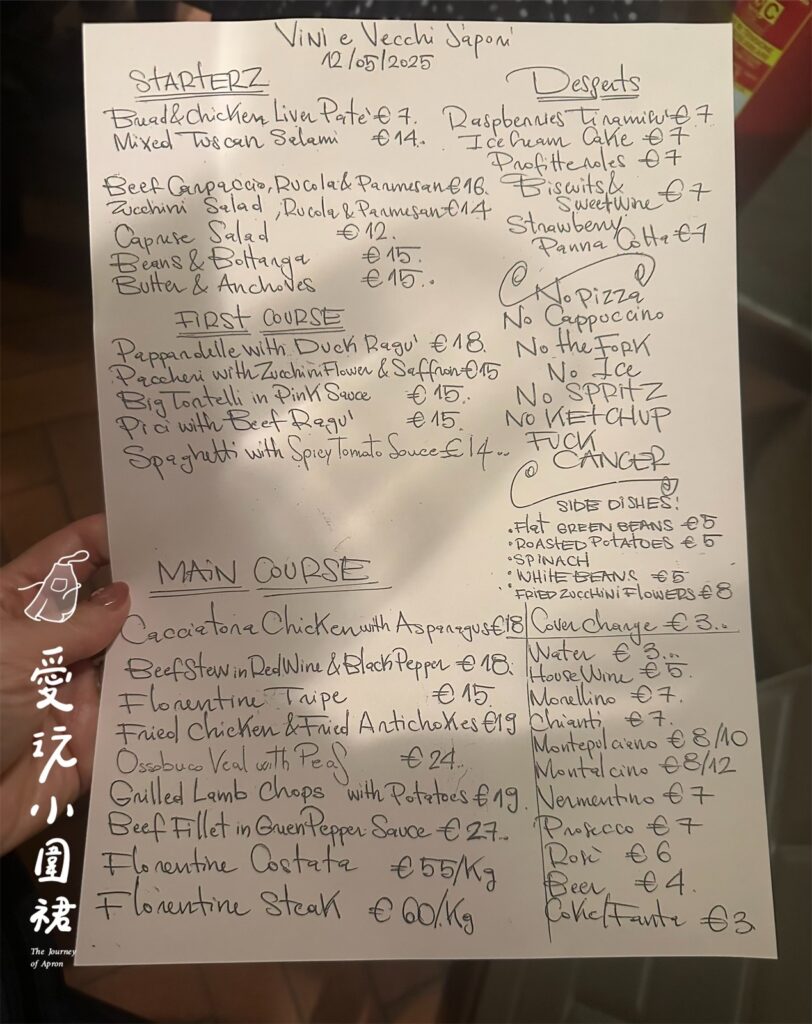 Vini e Vecchi Sapori
12/05/2025
STARTERZ
Bread & Chicken Liver Patè €7.
Mixed Tuscan Salami €14..
Beef Carpaccio, Rucola & Parmesan €16.
Zucchini Salad, Rucola & Parmesan €14
Caprese Salad €12.
Beans & Bottarga €15.
Butter & Anchovies €15..
FIRST COURSE
Pappardelle with Duck Ragu' €18.
Paccheri with Zucchini Flower & Saffron €15
Big Tortelli in Pink Sauce €15.
Pici with Beef Ragu' €15.
Spaghetti with Spicy Tomato Sauce €14..
MAIN COURSE
Cacciatora Chicken with Asparagus €18
Beef Stew in Red Wine & Black Pepper €18.
Florentine Tripe €15.
Fried Chicken & Fried Artichokes €19
Ossobuco Veal with Peas €24..
Grilled Lamb Chops with Potatoes €19.
Beef Fillet in Green Pepper Sauce €27..
Florentine Costata €55/Kg
Florentine Steak €60/Kg
Desserts
Raspberries Tiramisu' €7
Ice Cream Cake €7
Profitteroles €7
Biscuits &
Sweet Wine €7
Strawberry
Panna Cotta €7
No Pizza
No Cappuccino
No the FORK
No Ice
No SPRITZ
NO KETCHUP
FUCK
CANCER
SIDE DISHES!
• Flat GREEN BEANS €5
• ROASTED POTATOES €5
• SPINACH
• WHITE BEANS €5
• FRIED ZUCCHINI FLOWERS €8
Cover charge €3..
Water €3..
House Wine €5.
Morellino €7.
Chianti €7.
Montepulciano €8/10
Montalcino €8/12
Vermentino €7
Prosecco €7
Rosè €6
Beer €4.
Coke/Fanta €3.
愛玩小圍裙
The Journey
of Apron